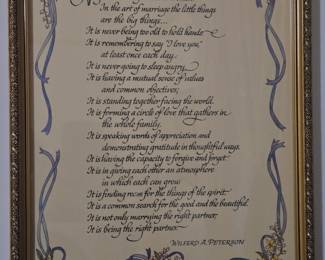 In the art of marriage the little things
are the big things...
It is never being too old to hold hands.
It is remembering to say "I love you"
at least once each day.
It is never going to sleep angry.
It is having a mutual sense of values
and common objectives;
It is standing together facing the world.
It is forming a circle of love that gathers in
the whole family.
It is speaking words of appreciation and
demonstrating gratitude in thoughtful ways.
It is having the capacity to forgive and forget.
It is in giving each other an atmosphere
in which each can grow.
It is finding room for the things of the spirit.
It is a common search for the good and the beautiful.
It is not only marrying the right partner;
It is being the right partner.
WILFERD A. PETERSON